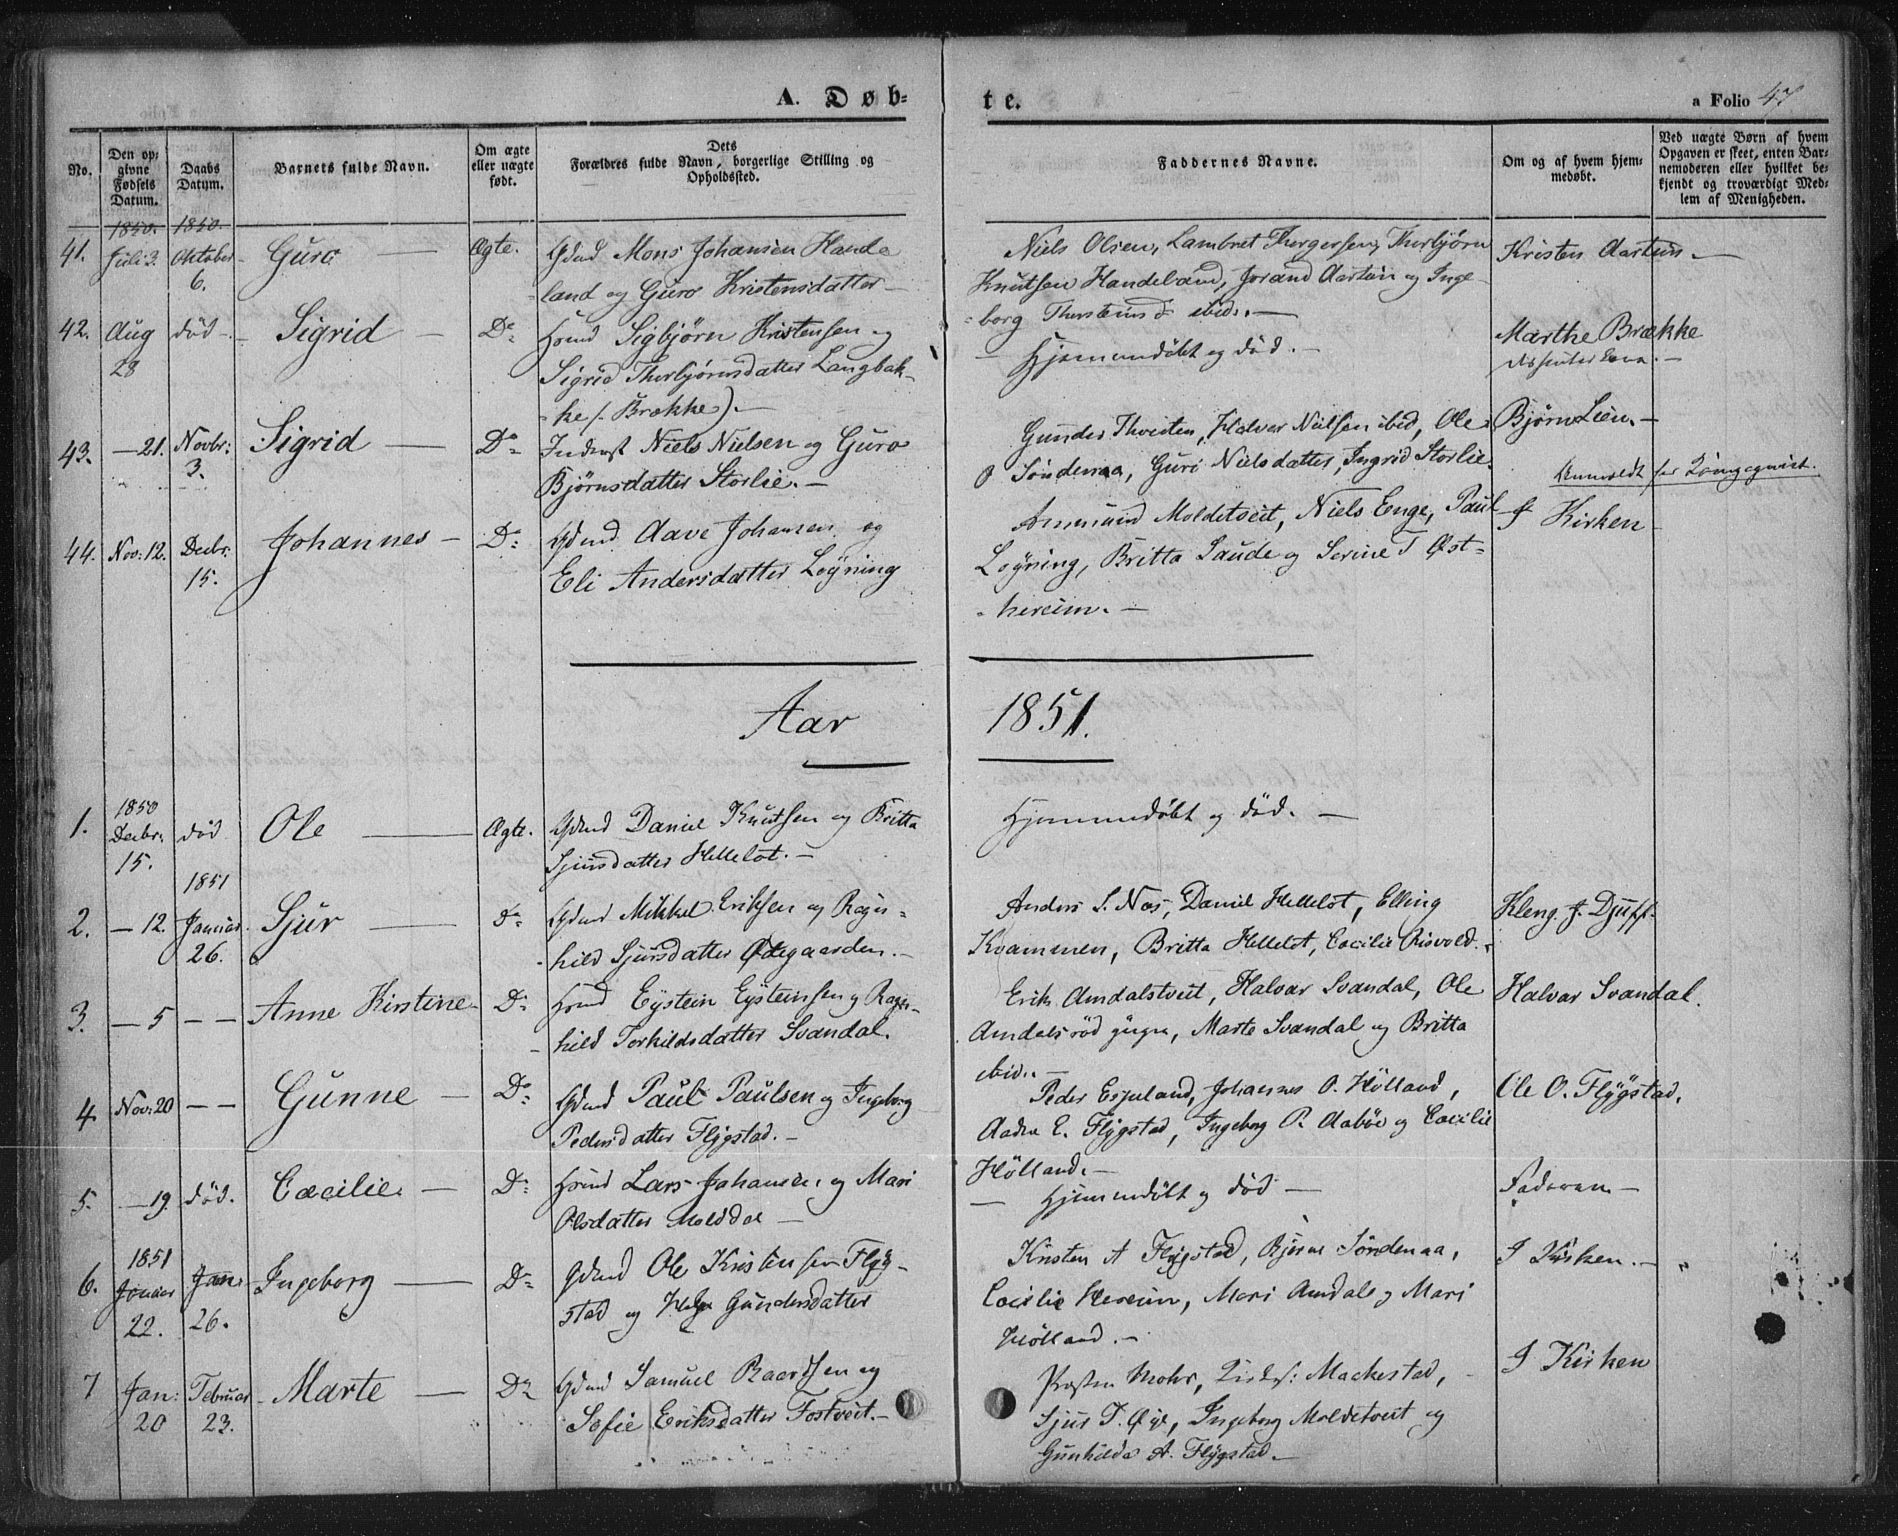 A. Døb=
te.
a Folio 47
No.
Den op=
givne
Fødsels
Datum.
Daabs
Datum.
Barnets fulde Navn.
Om ægte
eller nægte
født.
Dets
Forældres fulde Navn, borgerlige Stilling og
Opholdssted.
Faddernes Navne.
Om og af hvem hjem=
medøbt.
Ved uægte Børn af hvem
Opgaven er skeet, enten Bar=
nemoderen eller hvilket be=
kjendt og troværdigt Med=
lem af Menigheden.
1850. 1850.
41. Juli 3. Oktober 6. Guro — Ægte. Gdmd Mons Johansen Hande
land og Guro Kristensdatter —
Niels Olsen, Lambret Thorgersen, Thorbjørn
Knutsen Handeland, Jorand Aartun og Inge=
borg Thorsteinsd: ibid. —
Kristen Aartun. —
42. Aug 28 død — Sigrid — Do Hsmd Sigbjørn Kristensen og
Sigrid Thorbjørnsdatter Langbak=
ke (Brække). —
— Hjemmedøbt og død. —
Marthe Brække
43. — 21. Novbr: 3. Sigrid — Do Inderst Niels Nielsen og Guro
Bjørnsdatter Storlie. —
Gunder Thveiten, Halvor Nielsen ibid, Ole
O Søndenaa, Guri Nielsdatter, Ingrid Storlie.
Bjørn Lien. —
Anmeldt for
44. Nov: 12. Decbr: 15. Johannes — Do Gdmd. Aave Johansen og
Eli Andersdatter Løyning
Ammund Moldetveit, Niels Enge, Paul
Løyning, Britta Saude og Serine T Øst=
hereim. —
I Kirken
Aar 1851.
1. 1850 Decbr: 15. død Ole — Ægte. Gdmd Daniel Knutsen og Britta
Sjursdatter Hellelot. —
Hjemmedøbt og død. —
2. — 12. 1851 Januar 26. Sjur — Do Gdmd Mikkel Eriksen og Ragn=
hild Sjursdatter Ødegaarden. —
Anders S. Næs, Daniel Hellelot, Elling
Kvammen, Britta Hellelot, Cecilie Risvold. —
Kleng J. Djuff.
3. — 5 — — Anne Kirstine — Do Hsmd Eystein Eysteinsen og Ragn=
hild Torkildsdatter Svandal.
Erik Amdalstveit, Halvar Svandal, Ole
Amdalsrød yngre, Marte Svandal og Britta
ibid. —
Halvar Svandal.
4. Nov: 20 — — Gunne — Do Gdmd Paul Paulsen og Ingeborg
Pedersdatter Flygstad. —
Peder Espeland, Johannes O. Hølland,
Aadne E. Flygstad, Ingeborg P. Aabøe og Cecilie
Hølland. —
Ole O. Flygstad.
5. — 19. død. Cæcilie. — Do Hsmd Lars Johansen og Mari
Olsdatter Molddal —
— Hjemmedøbt og død —
Faderen —
6. 1851 Januar 22. Jan: 26. Ingeborg — Do Gdmd Ole Kristensen Flyg=
stad og Helga Gundersdatter
Kristen A Flygstad, Bjørn Søndenaa,
Cecilie Hereim, Mari Amdal og Mari
Hølland. —
I Kirken. —
7 Jan: 20 Februar 23. Marte — Do Gdmd Samuel Baardsen og
Sofie Eriksdatter Fostveit. —
Præsten Mohr, Mackestad,
Sjur T. Øye, Ingeborg Moldetveit og
Gunhilda A. Flygstad. —
I Kirken